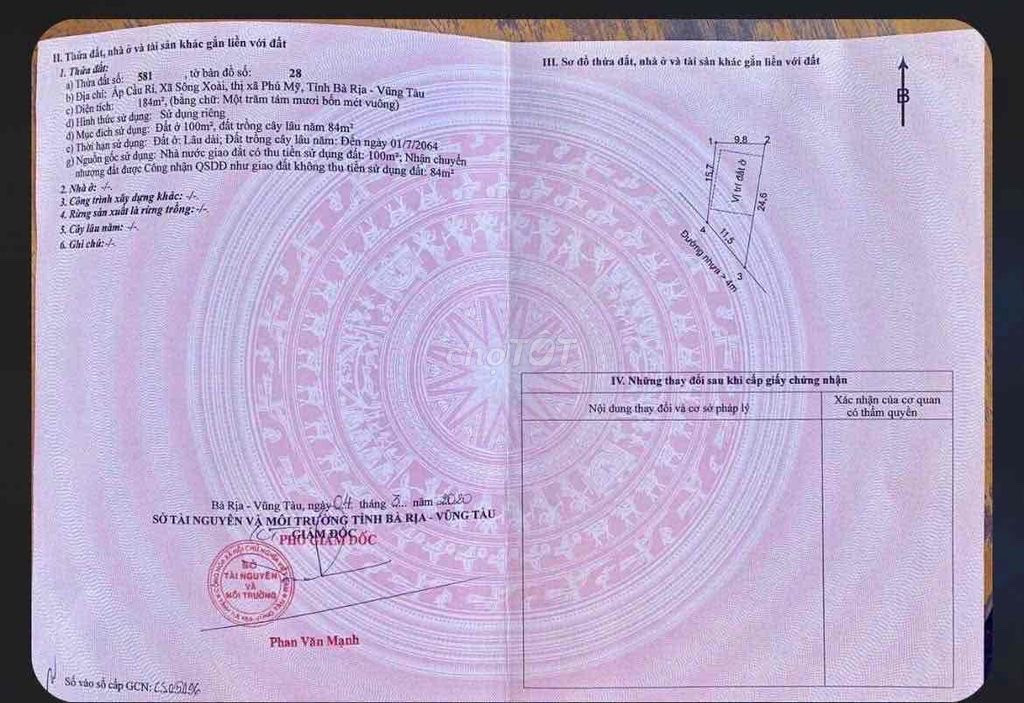 II. Thửa đất, nhà ở và tài sản khác gắn liền với đất
1. Thửa đất:
a) Thửa đất số: 581 , tờ bản đồ số: 28
b) Địa chỉ: Ấp Cầu Ri, Xã Sông Xoài, thị xã Phú Mỹ, Tỉnh Bà Rịa - Vũng Tàu
c) Diện tích: 184m², (bằng chữ: Một trăm tám mươi bốn mét vuông)
d) Hình thức sử dụng: Sử dụng riêng
đ) Mục đích sử dụng: Đất ở 100m², đất trồng cây lâu năm 84m²
e) Thời hạn sử dụng: Đất ở: Lâu dài; Đất trồng cây lâu năm: Đến ngày 01/7/2064
g) Nguồn gốc sử dụng: Nhà nước giao đất có thu tiền sử dụng đất: 100m²; Nhận chuyển
nhượng đất được Công nhận QSDĐ như giao đất không thu tiền sử dụng đất: 84m²
2. Nhà ở: -/-
3. Công trình xây dựng khác: -/-
4. Rừng sản xuất là rừng trồng: -/-
5. Cây lâu năm: -/-
6. Ghi chú: -/-
Bà Rịa - Vũng Tàu, ngày 04 tháng 3 năm 2020
SỞ TÀI NGUYÊN VÀ MÔI TRƯỜNG TỈNH BÀ RỊA - VŨNG TÀU
GIÁM ĐỐC
PHÓ GIÁM ĐỐC
SỞ
TÀI NGUYÊN
VÀ
MÔI TRƯỜNG
Phan Văn Mạnh
Số vào sổ cấp GCN:
III. Sơ đồ thửa đất, nhà ở và tài sản khác gắn liền với đất
B
1 9,8 2
15,7
Vị trí đất ở
24,6
4
11,5
3
Đường nhựa > 4m
choTỐT
IV. Những thay đổi sau khi cấp giấy chứng nhận
Nội dung thay đổi và cơ sở pháp lý
Xác nhận của cơ quan
có thẩm quyền